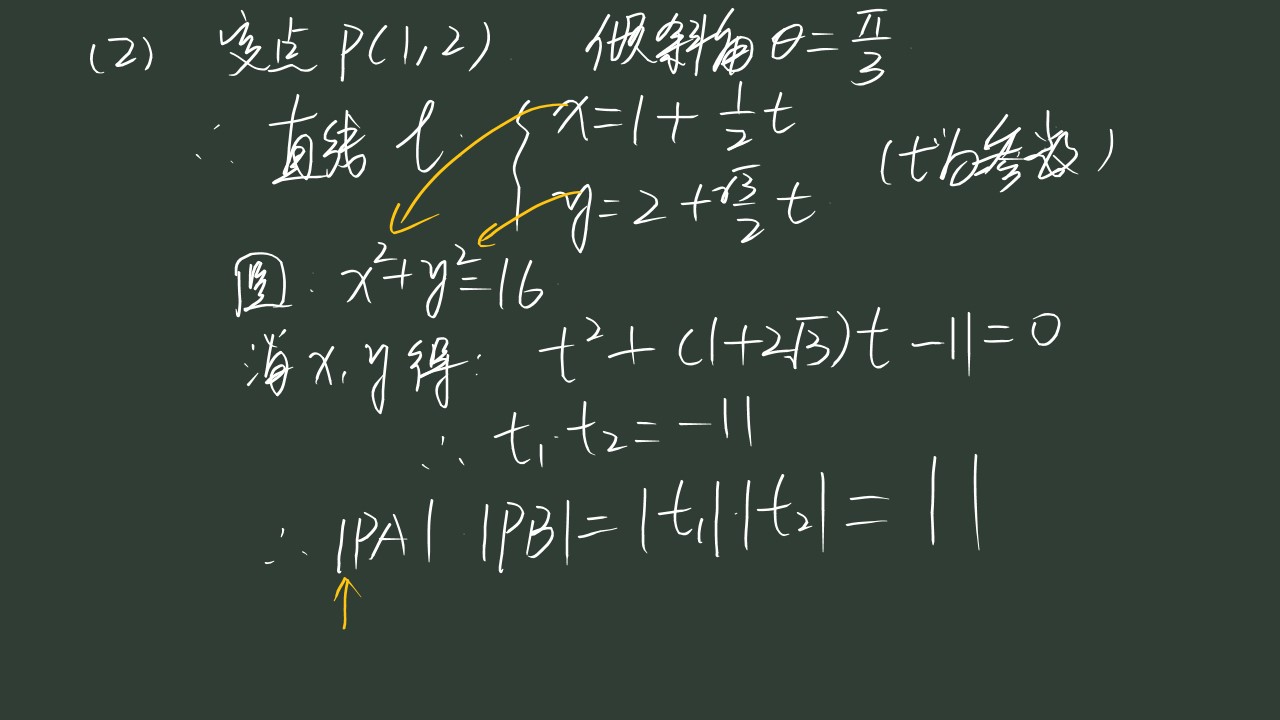 (2) 定点 P(1,2) 倾斜角 θ=π/3
∴ 直线 l: { x=1+1/2 t
y=2+√3/2 t (t为参数)
圆: x²+y²=16
消 x, y 得: t²+(1+2√3)t-11=0
∴ t₁·t₂=-11
∴ |PA|·|PB|=|t₁|·|t₂|=11